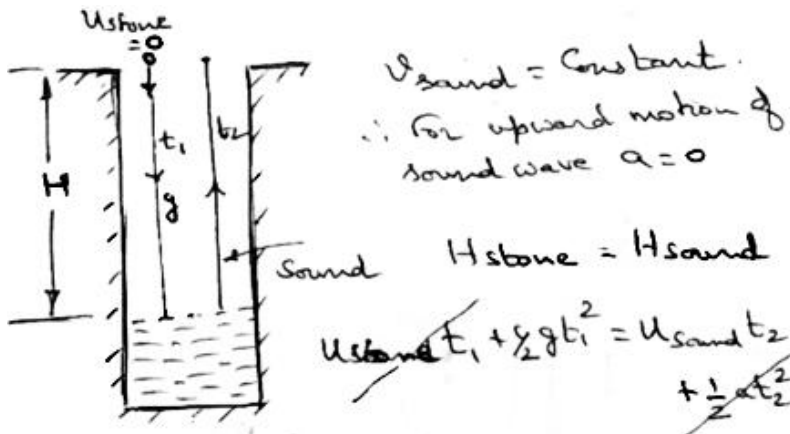 Ustone
=0
H
t₁
g
t₂
Sound
Vsound = Constant.
∴ For upward motion of
sound wave a = 0
Hstone = Hsound
Ustone t₁ + ½ g t₁² = Usound t₂
+ ½ a t₂²